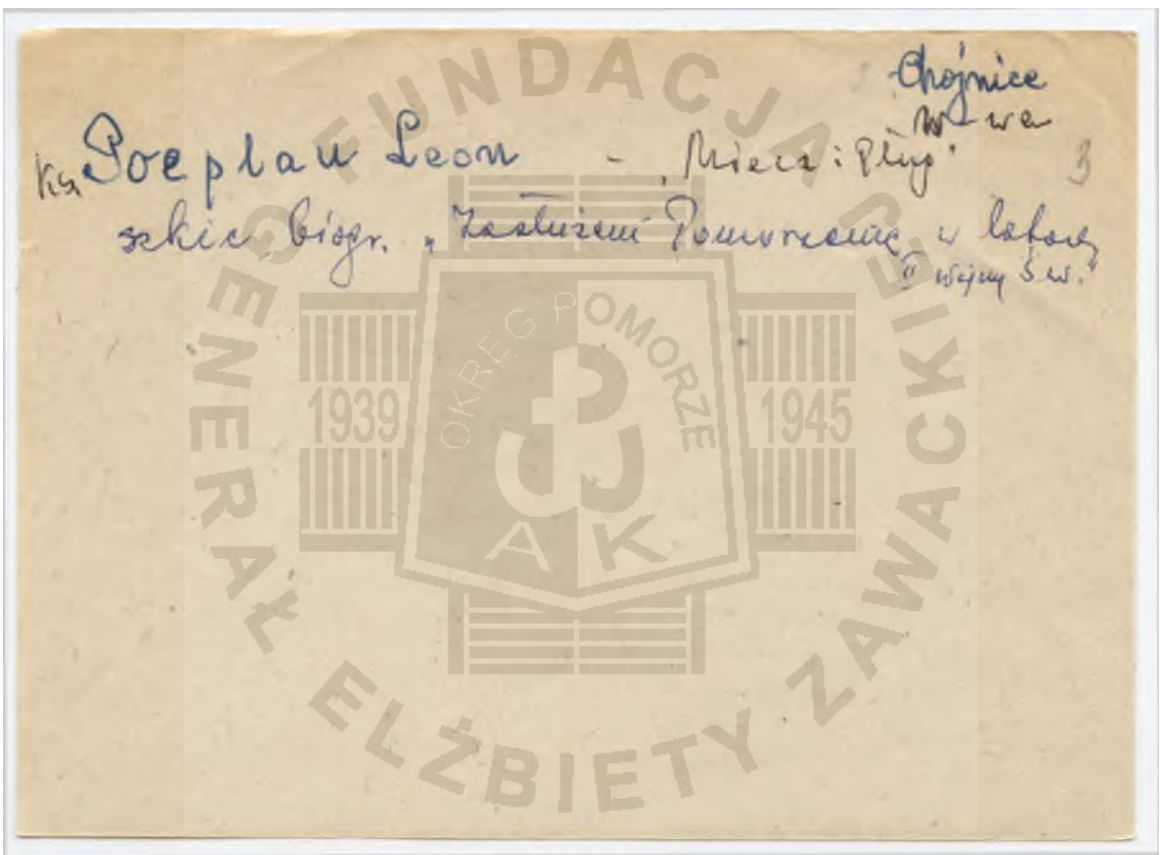 Chojnice
W-wa
ks. Poeplau Leon - "Miecz i Pług" 3
szkic biogr. "Zasłużeni Pomorzanie w latach
II wojny św."
FUNDACJA GENERAŁ ELŻBIETY ZAWACKIEJ
OKRĘG POMORZE
1939 1945
AK